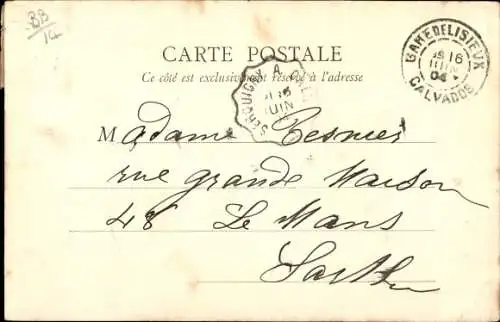 BB
14
CARTE POSTALE
Ce côté est exclusivement réservé à l'adresse
GARE DE LISIEUX
16
JUIN
04
CALVADOS
SERQUIGNY A
16
JUIN
Madame Besnier
rue grande Maison
48 Le Mans
Sarthe